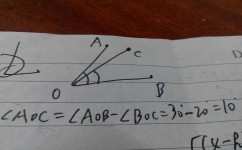 A
C
O
B
∠AOC=∠AOB-∠BOC=30°-20°=10